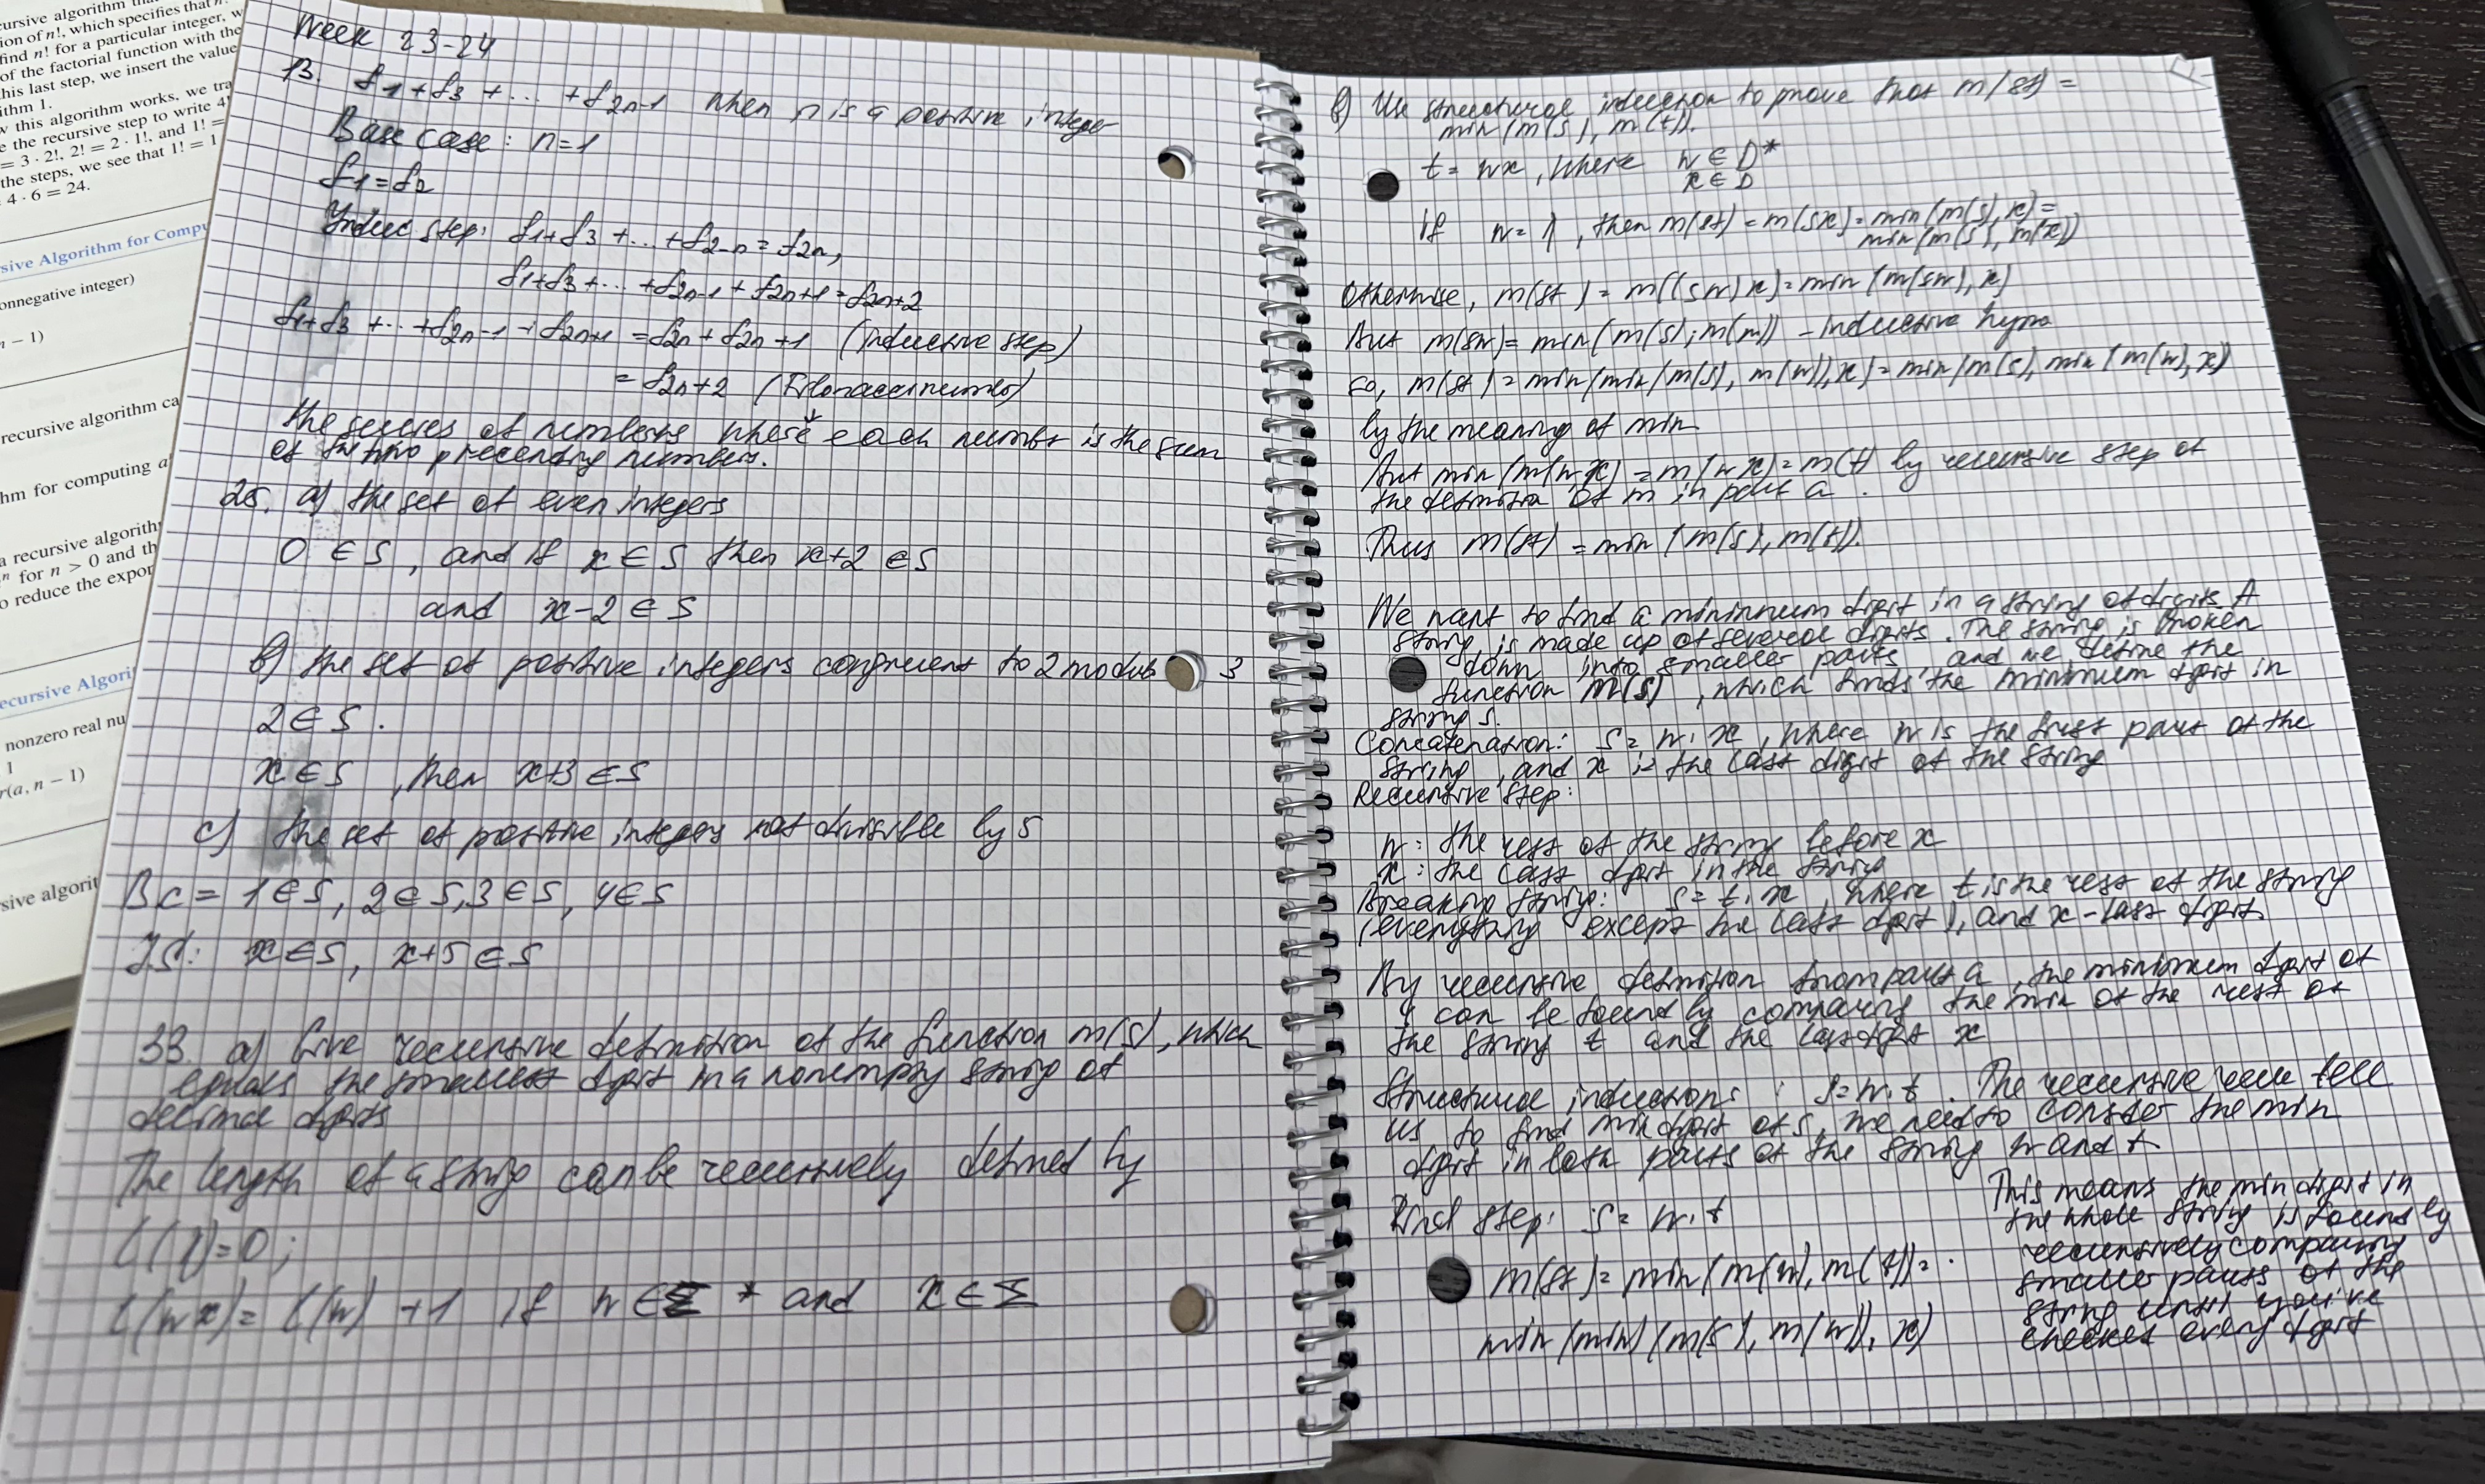 cursive algorithm
ion of n!, which specifies that n!
find n! for a particular integer, w
of the factorial function with the
his last step, we insert the value
ithm 1.
w this algorithm works, we tra
e the recursive step to write 4!
= 3 · 2!, 2! = 2 · 1!, and 1! =
the steps, we see that 1! = 1
4 · 6 = 24.
sive Algorithm for Compu
onnegative integer)
n − 1)
recursive algorithm ca
hm for computing a
a recursive algorith
n for n > 0 and th
o reduce the expor
ecursive Algori
nonzero real nu
1
r(a, n − 1)
sive algorit
Week 23-24
13. f1+f3 +... +f2n-1 when n is a positive integer
Base case: n=1
f1=f2
Induc step: f1+f3 +...+f2-n = f2n,
f1+f3 +... +f2n-1 + f2n+1 = f2n+2
f1+f3 +... +f2n-1 + f2n+1 = f2n + f2n+1 (inductive step)
= f2n+2 (Fibonacci numbs)
the seseres of numbers where each number is the sum
of the two precending numbers.
25. a) the set of even integers
0 ∈ S, and if x ∈ S then x+2 ∈ S
and x-2 ∈ S
b) the set of positive integers congruent to 2 modulo 3
2 ∈ S.
x ∈ S, then x+3 ∈ S
c) the set of positive integers not divisible by 5
BC = 1 ∈ S, 2 ∈ S, 3 ∈ S, 4 ∈ S
IS: x ∈ S, x+5 ∈ S
33. a) Give recursive definition of the function m(s), which
equals the smallest digit in a nonempty string of
decimal digits
The length of a string can be recursively defined by
l(λ)=0;
l(wx)= l(w) +1 if w ∈ Σ* and x ∈ Σ
b) Use structural induction to prove that m(st) =
min(m(s), m(t)).
t = wx, where w ∈ D*
x ∈ D
if w = λ, then m(st) = m(sx) = min(m(s), x) =
min(m(s), m(x))
Otherwise, m(st) = m((sw)x) = min(m(sw), x)
But m(sw) = min(m(s); m(w)) - inductive hypo
so, m(st) = min(min(m(s), m(w)), x) = min(m(s), min(m(w), x)
by the meaning of min.
But min(m(w x) = m(wx) = m(t) by recursive step of
the definition of m in part a.
Thus m(st) = min(m(s), m(t)).
We want to find a minimum digit in a string of digits. A
string is made up of several digits. The string is broken
down into smaller parts and we define the
function m(s), which finds the minimum digit in
string s.
Concatenation: s = w.x, where w is the first part of the
string, and x is the last digit of the string
Recursive step:
w: the rest of the string before x
x: the last digit in the string
Breaking string: s = t.x, where t is the rest of the string
(everything except the last digit), and x - last digit.
By recursive definition from part a, the minimum digit of
can be found by comparing the min of the rest of
the string t and the last digit x
Structural inductions: s=w.t. The recursive rule tell
us to find min digit of s, we need to consider the min
digit in both parts of the string w and t.
Final step: s = w.t
m(st) = min(m(w), m(t)) =
min(min)(m(s), m(w)), x)
This means the min digit in
the whole string is found by
recursively comparing
smaller parts of the
string until you've
checked every digit